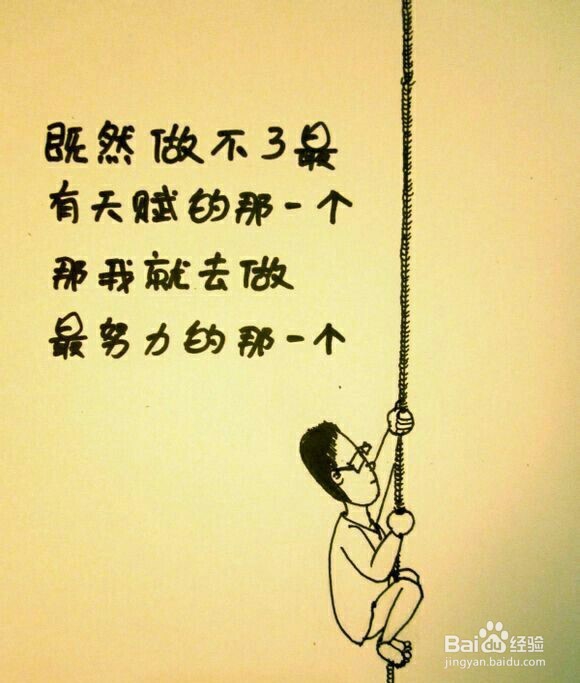 既然做不了最
有天赋的那一个
那我就去做
最努力的那一个
Baidu经验
jingyan.baidu.com